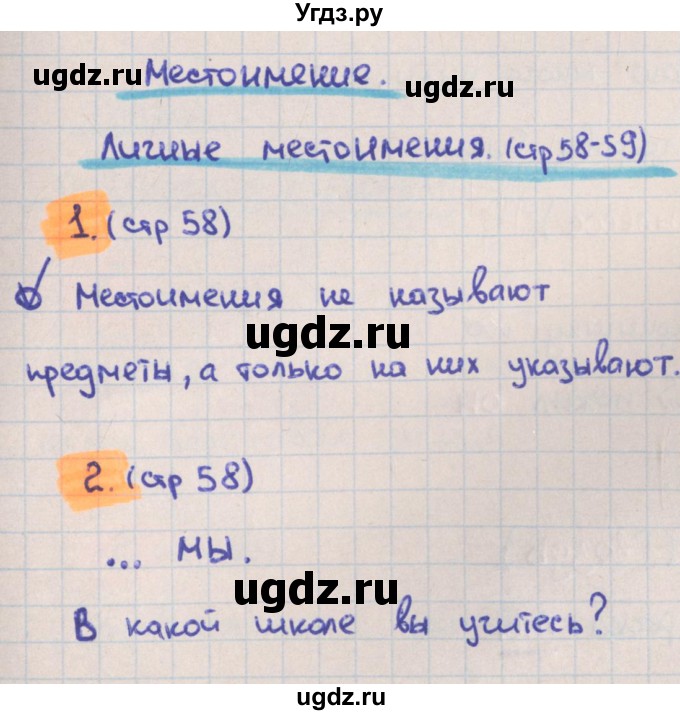 Угдз.ру
ugdz.ru
Местоимение.
ugdz.ru
Личные местоимения. (стр 58-59)
1. (стр 58)
Местоимения не называют
ugdz.ru
предметы, а только на них указывают.
2. (стр 58)
... мы.
ugdz.ru
В какой школе вы учитесь?
ugdz.ru